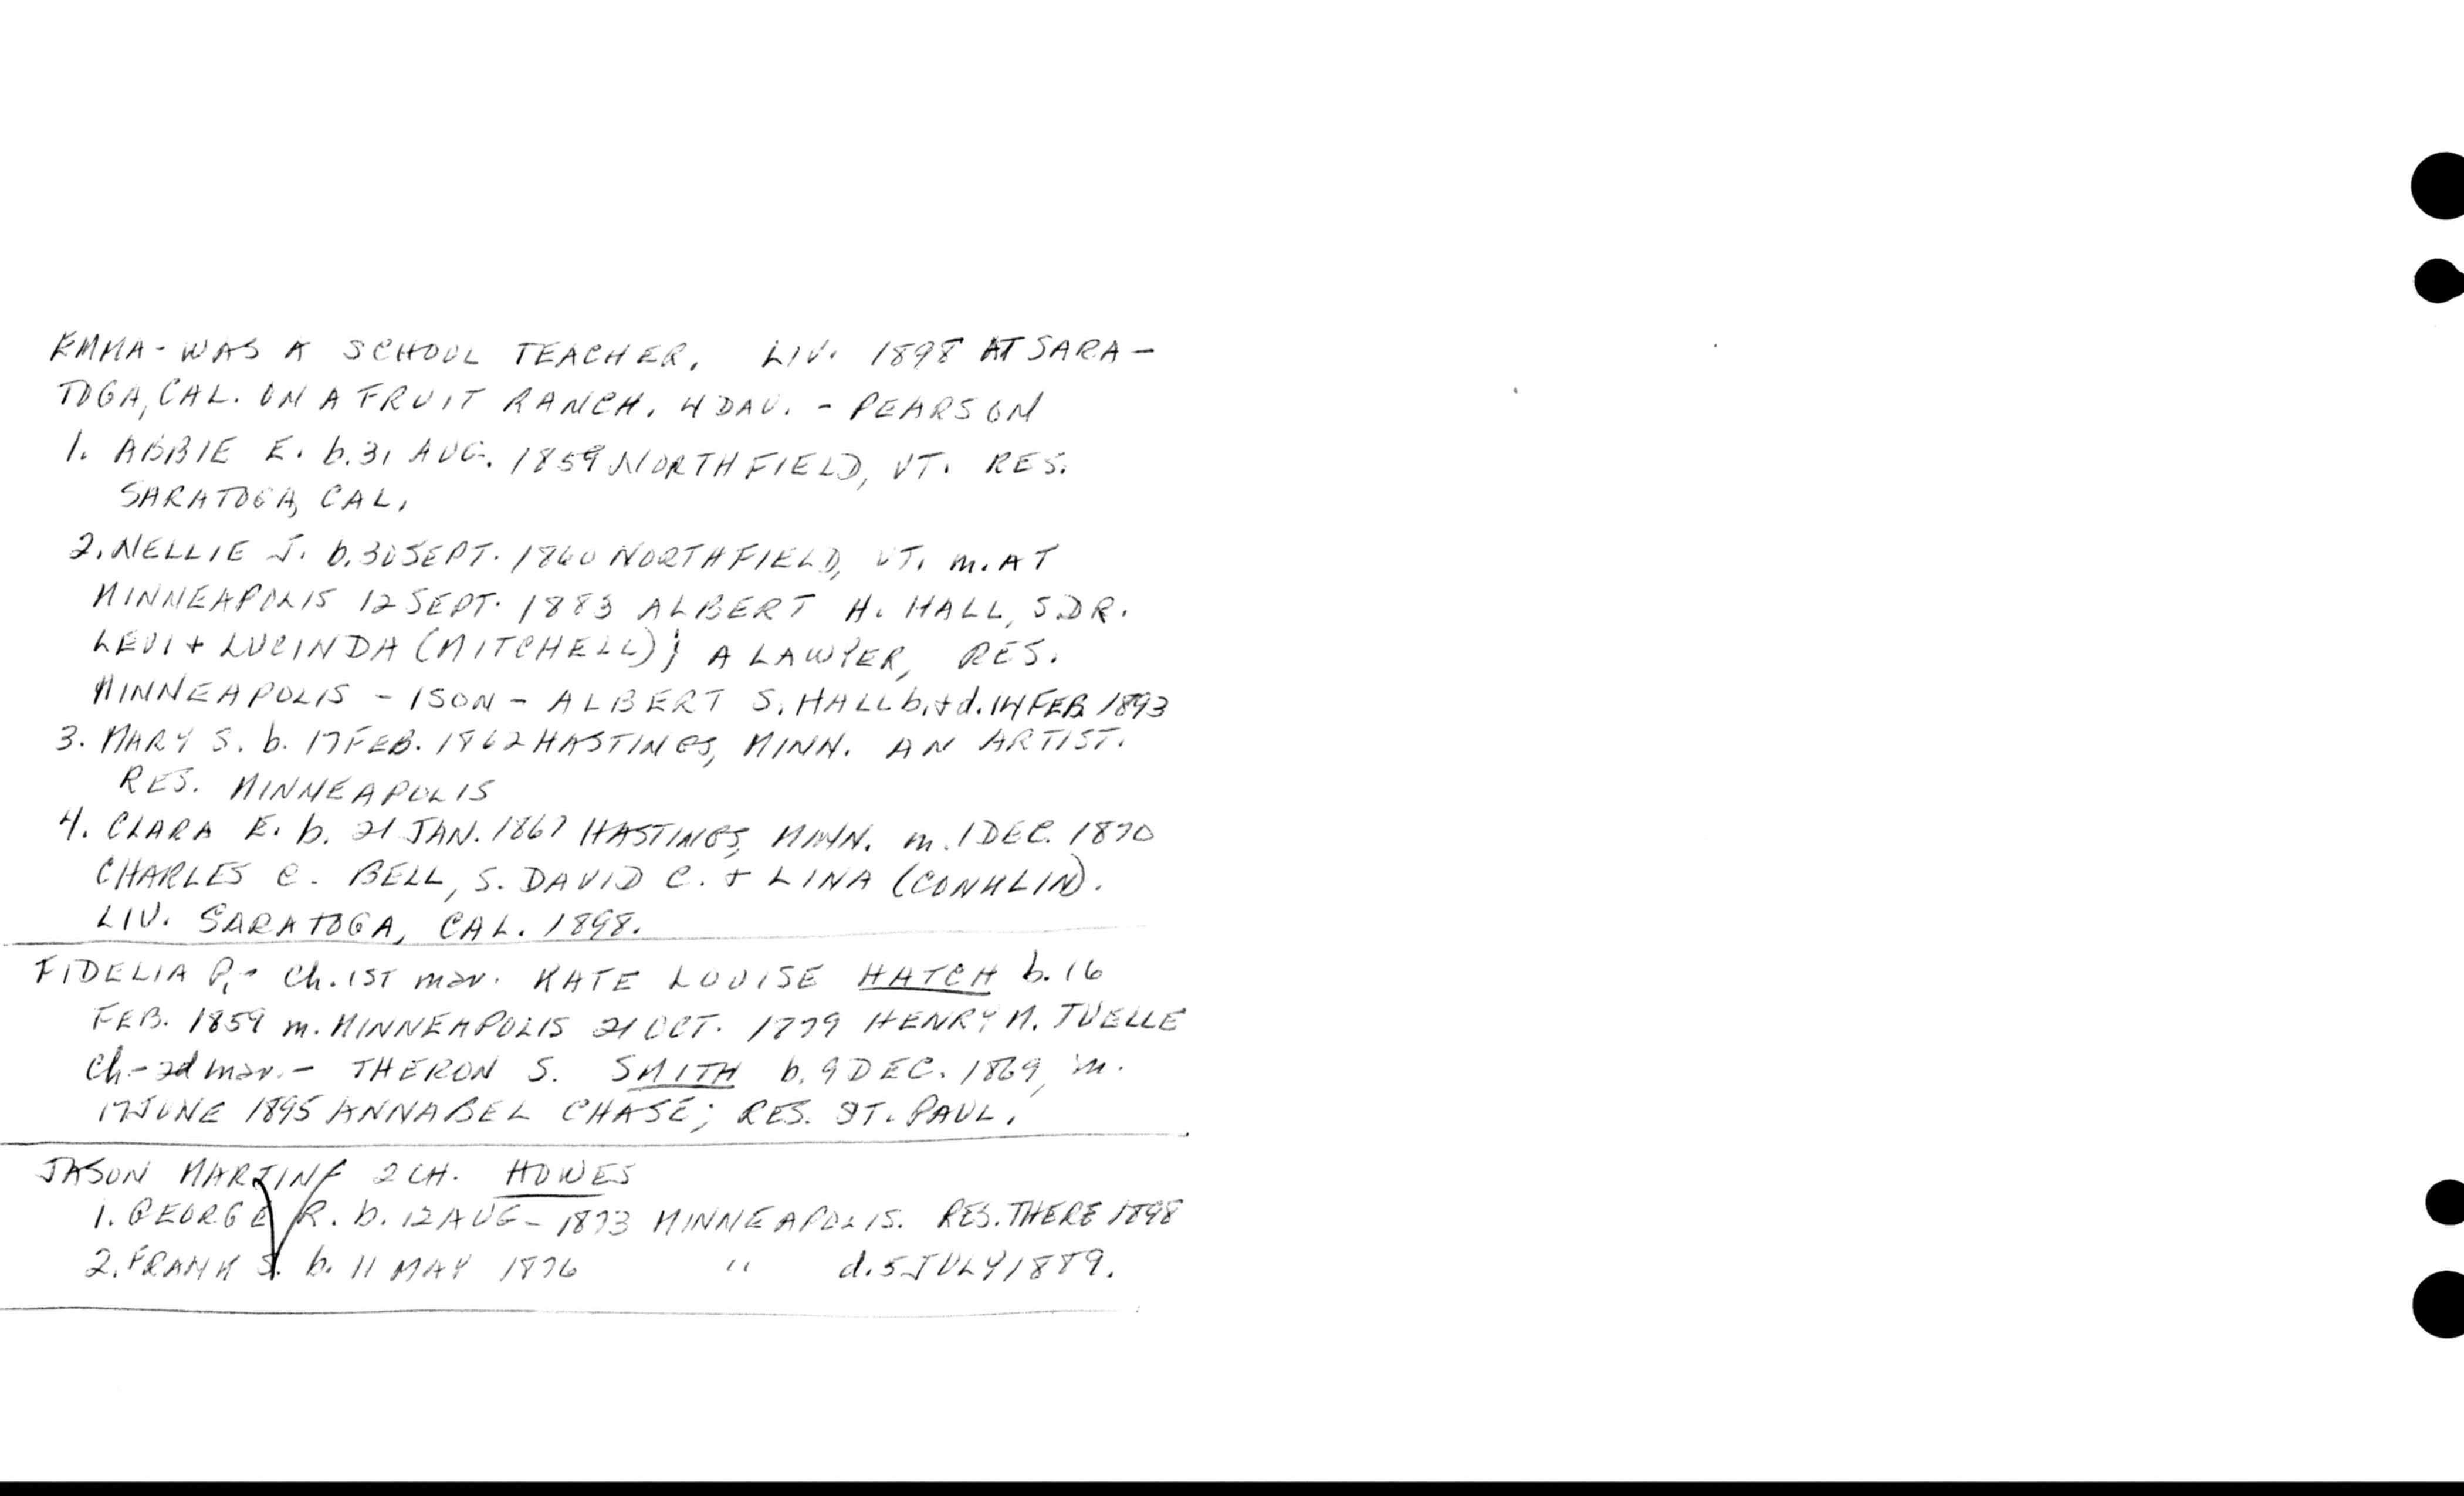 EMMA - WAS A SCHOOL TEACHER. LIV. 1898 AT SARA-
TOGA, CAL. ON A FRUIT RANCH. 4 DAU. - PEARSON
1. ABBIE E. b. 31 AUG. 1859 NORTHFIELD, VT. RES.
SARATOGA, CAL.
2. NELLIE J. b. 30 SEPT. 1860 NORTHFIELD, VT. m. AT
MINNEAPOLIS 12 SEPT. 1883 ALBERT H. HALL, S. DR.
LEVI + LUCINDA (MITCHELL); A LAWYER, RES.
MINNEAPOLIS - 1 SON - ALBERT S. HALL b. + d. 14 FEB. 1893
3. MARY S. b. 17 FEB. 1862 HASTINGS, MINN. AN ARTIST.
RES. MINNEAPOLIS
4. CLARA E. b. 21 JAN. 1867 HASTINGS, MINN. m. 1 DEC. 1870
CHARLES C. BELL, S. DAVID C. + LINA (CONKLIN).
LIV. SARATOGA, CAL. 1898.
FIDELIA P. - Ch. 1ST mar. KATE LOUISE HATCH b. 16
FEB. 1859 m. MINNEAPOLIS 21 OCT. 1779 HENRY M. TUELLE
Ch - 2d mar. - THERON S. SMITH b. 9 DEC. 1869, m.
17 JUNE 1895 ANNABEL CHASE; RES. ST. PAUL.
JASON MARTIN 2 CH. HOWES
1. GEORGE R. b. 12 AUG - 1873 MINNEAPOLIS. RES. THERE 1898
2. FRANK S. b. 11 MAY 1876 " d. 5 JULY 1889.